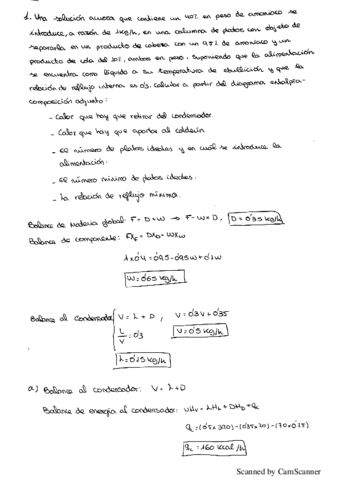 1. Una solución acuosa que contiene un 40% en peso de amoniaco se
introduce, a razón de 1kg/h, en una columna de platos con objeto de
separarla en un producto de cabeza con un 95% de amoniaco y un
producto de cola del 10%, ambos en peso. Suponiendo que la alimentación
se encuentra como líquido a su temperatura de ebullición y que la
relación de reflujo interna es 0'3. calcular a partir del diagrama entalpía-
composición adjunto:
- Calor que hay que retirar del condensador.
- Calor que hay que aportar al calderín
- El número de platos ideales y en cuál se introduce la
alimentación.
- El número mínimo de platos ideales.
- La relación de reflujo mínima.
Balance de Materia global: F = D+W → F-W=D, D = 0'35 kg/h
Balance de componente: FXF = DXD + WXW
1x0'4 = 0'95 - 0'95W + 0'1W
W = 0'65 kg/h
Balance al Condensador V = L + D, V = 0'3V + 0'35
L/V = 0'3 V = 0'5 kg/h
L = 0'15 kg/h
a) Balance al condensador: V = L+D
Balance de energía al condensador: VHV = LHL + DHD + qc
qc = (0'5 x 390) - (0'35 x 70) - (70 x 0'15)
qc = 160 kcal/h
Scanned by CamScanner